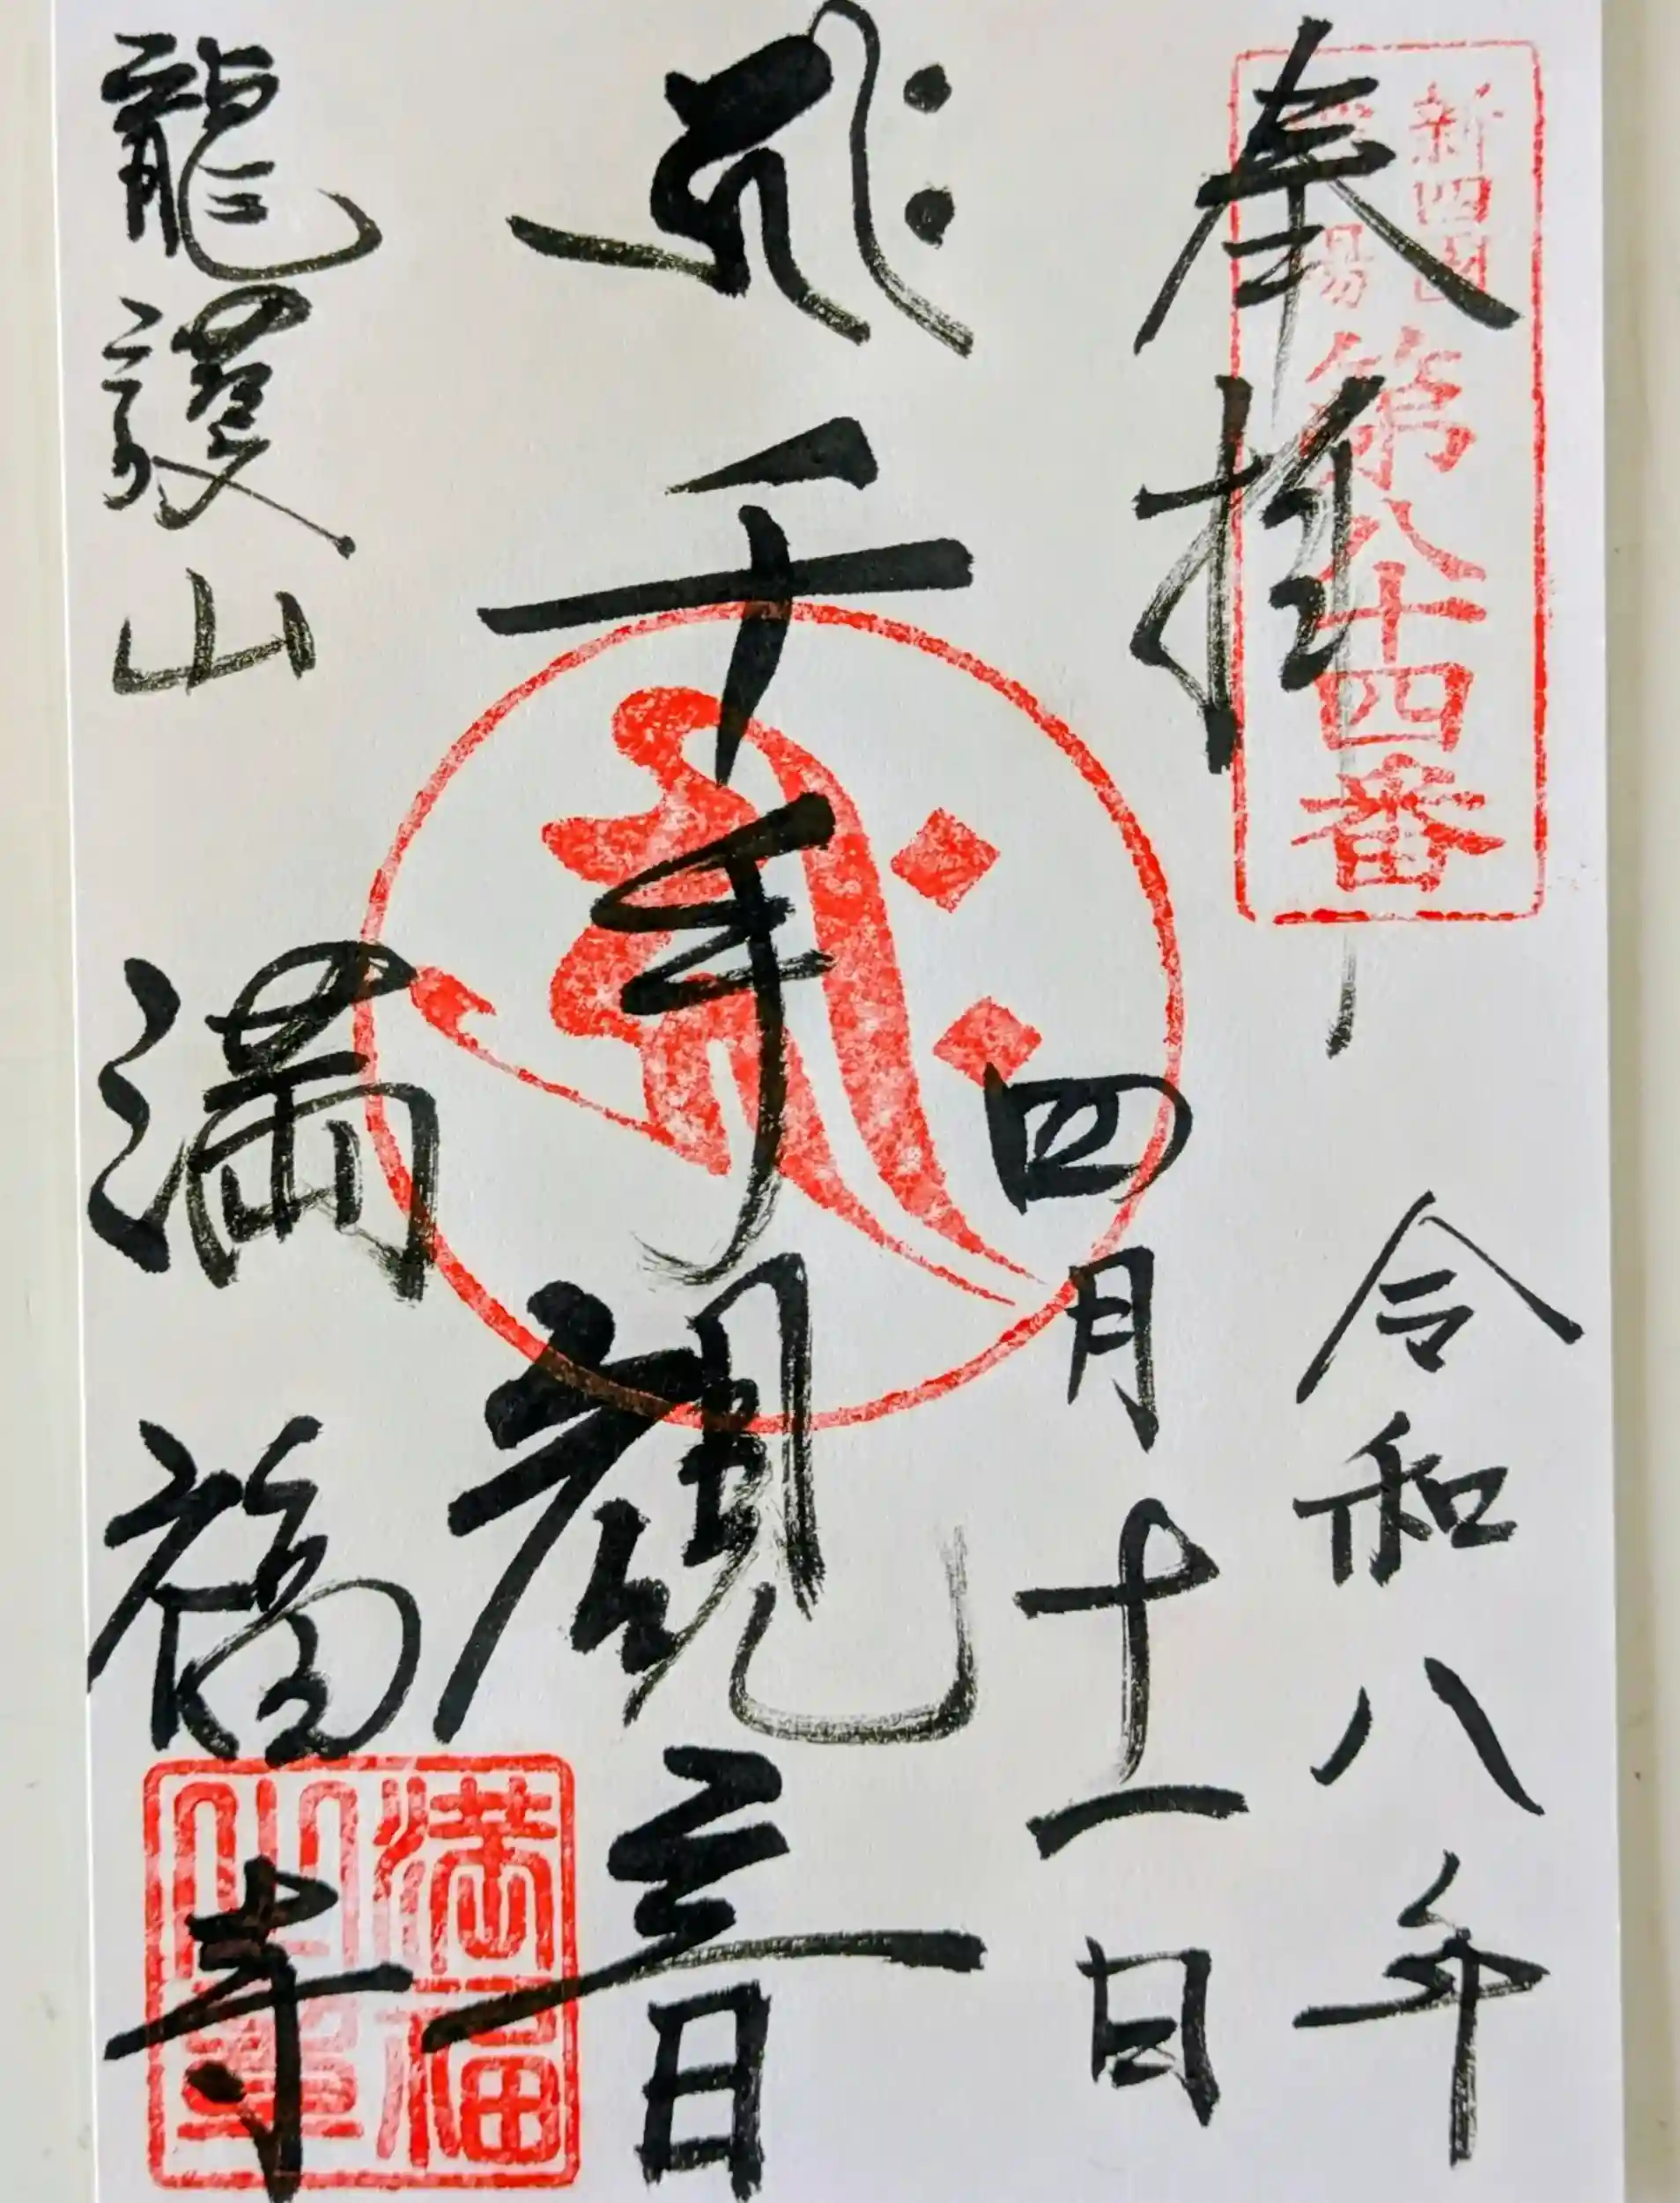 奉拝
新四国
霊場
第八十四番
令和八年
四月十一日
千手観音
龍護山
満福寺
満福